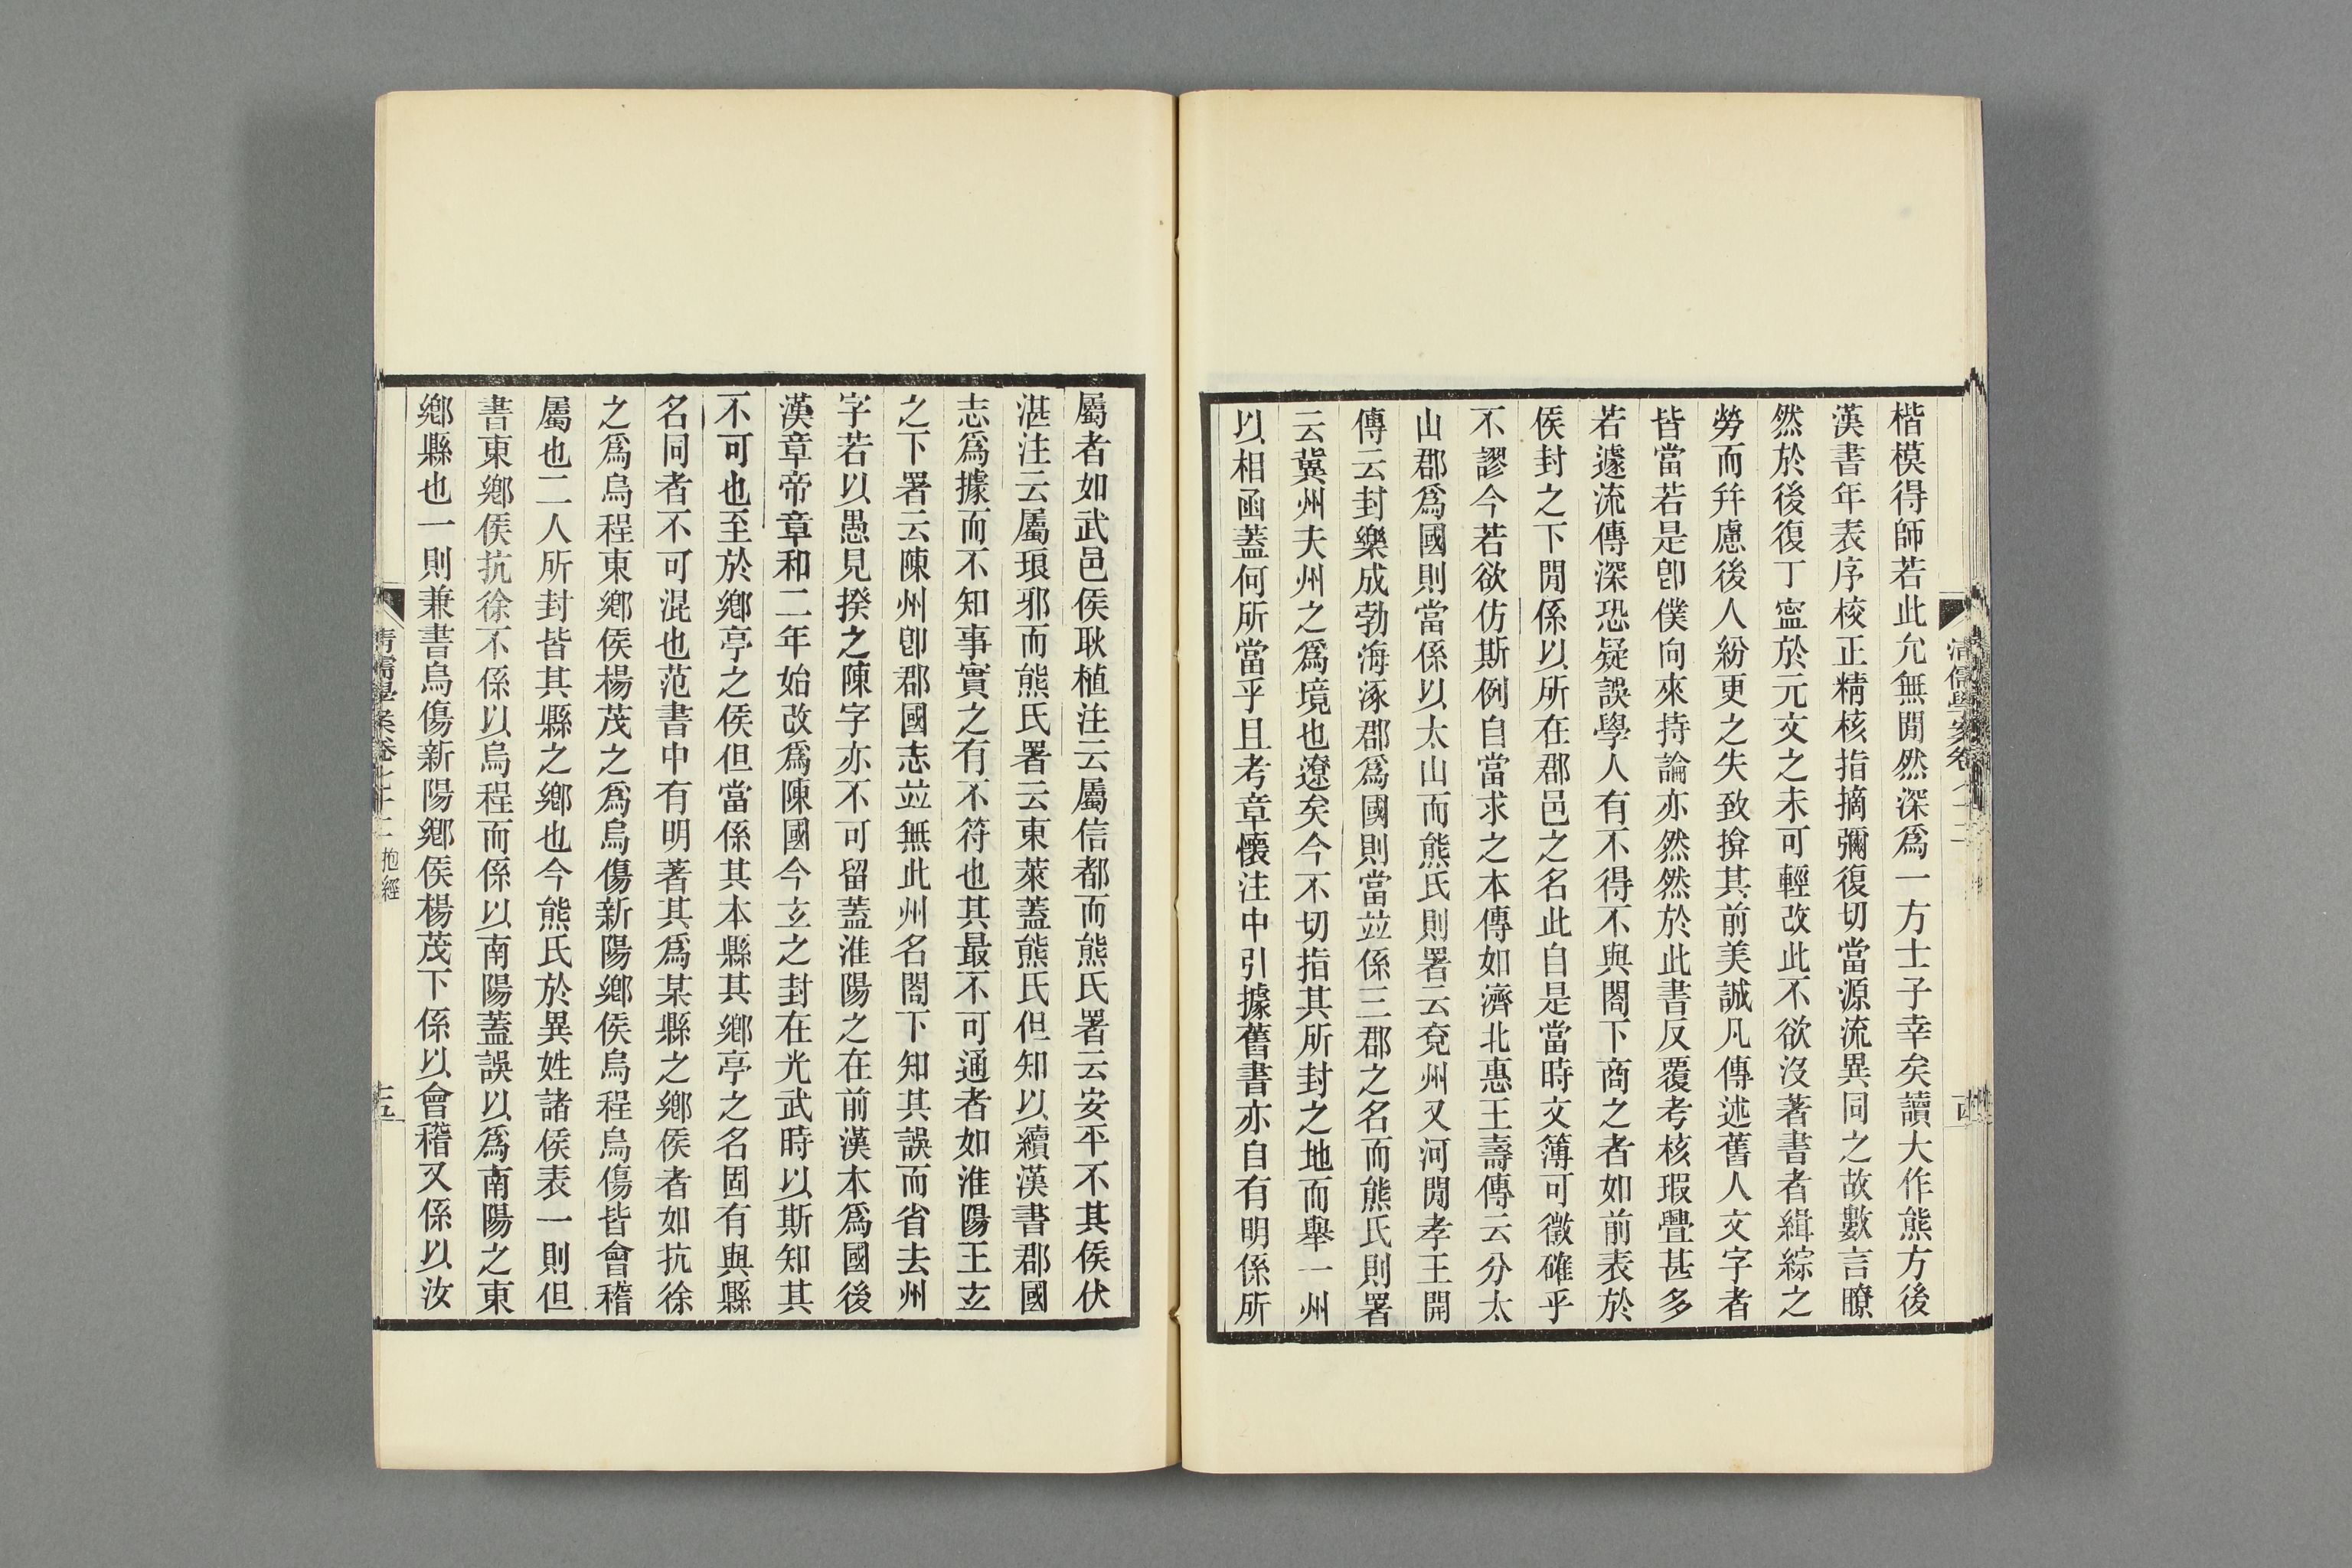 楷模得師若此允無閒然深爲一方士子幸矣讀大作熊方後
漢書年表序校正精核指摘彌復切當源流異同之故數言瞭
然於後復丁寍於元文之未可輕改此不欲沒著書者緝綜之
勞而幷慮後人紛更之失致揜其前美誠凡傳述舊人文字者
皆當若是卽僕向來持論亦然然於此書反覆考核瑕舋甚多
若遽流傳深恐疑誤學人有不得不與閤下商之者如前表於
侯封之下閒係以所在郡邑之名此自是當時文簿可徵確乎
不謬今若欲仿斯例自當求之本傳如濟北惠王壽傳云分太
山郡爲國則當係以太山而熊氏則署云兗州又河閒孝王開
傳云封樂成勃海涿郡爲國則當竝係三郡之名而熊氏則署
云冀州夫州之爲境也遼矣今不切指其所封之地而舉一州
以相函蓋何所當乎且考章懷注中引據舊書亦自有明係所
屬者如武邑侯耿植注云屬信都而熊氏署云安平不其侯伏
湛注云屬琅邪而熊氏署云東萊蓋熊氏但知以續漢書郡國
志爲據而不知事實之有不符也其最不可通者如淮陽王玄
之下署云陳州卽郡國志竝無此州名閤下知其誤而省去州
字若以愚見揆之陳字亦不可留蓋淮陽之在前漢本爲國後
漢章帝章和二年始改爲陳國今玄之封在光武時以斯知其
不可也至於鄉亭之侯但當係其本縣其鄉亭之名固有與縣
名同者不可混也范書中有明著其爲某縣之鄉侯者如抗徐
之爲烏程東鄉侯楊茂之爲烏傷新陽鄉侯烏程烏傷皆會稽
屬也二人所封皆其縣之鄉也今熊氏於異姓諸侯表一則但
書東鄉侯抗徐不係以烏程而係以南陽蓋誤以爲南陽之東
鄉縣也一則兼書烏傷新陽鄉侯楊茂下係以會稽又係以汝
清儒學案卷七十二 抱經